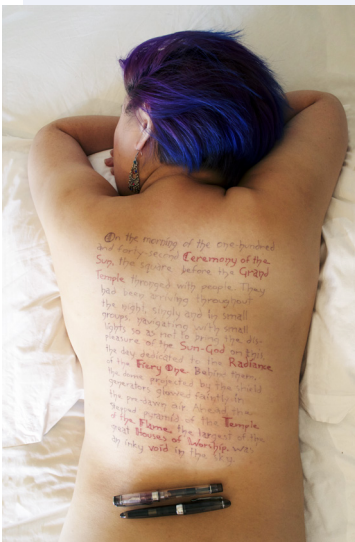 On the morning of the one hundred
and forty-second Ceremony of the
Sun, the square before the Grand
Temple thronged with people. They
had been arriving throughout
the night, singly and by small
groups, navigating with small
lights so as not to bring the dis-
pleasure of the Sun-God on this
the day dedicated to the Radiance
of the Fiery One. Behind them,
the dome projected by the shield
generators glowed faintly in
the pre-dawn air. Ahead, the
stepped pyramid of the Temple
of the Flame, the largest of the
great Houses of Worship, was
an inky void in the sky.